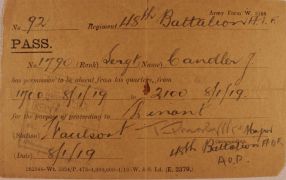 Army Form W. 3166
No. 92 Regiment 48th Battalion A.I.F.
PASS.
No. 1790 (Rank) Sergt (Name) Candler J
has permission to be absent from his quarters, from
1700 8/1/19 to 2100 8/1/19.
for the purpose of proceeding to Dinant
(Station) Major
48th Battalion A.I.F.
(Date) 8/1/19 A.I.F.